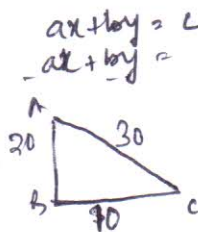 ax+by = c
ax+by =
A
20 30
B C
70